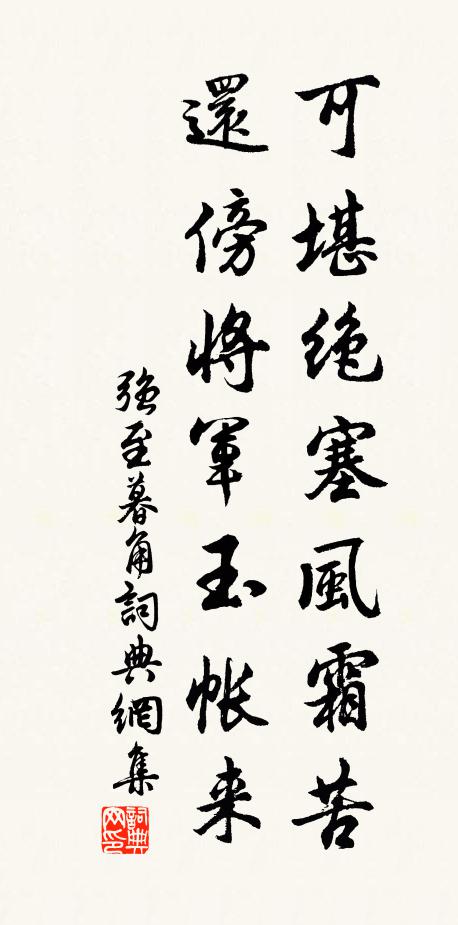 可堪绝塞風霜苦
還傍將軍玉帐来
強至暮角詞典網集
詞典网印